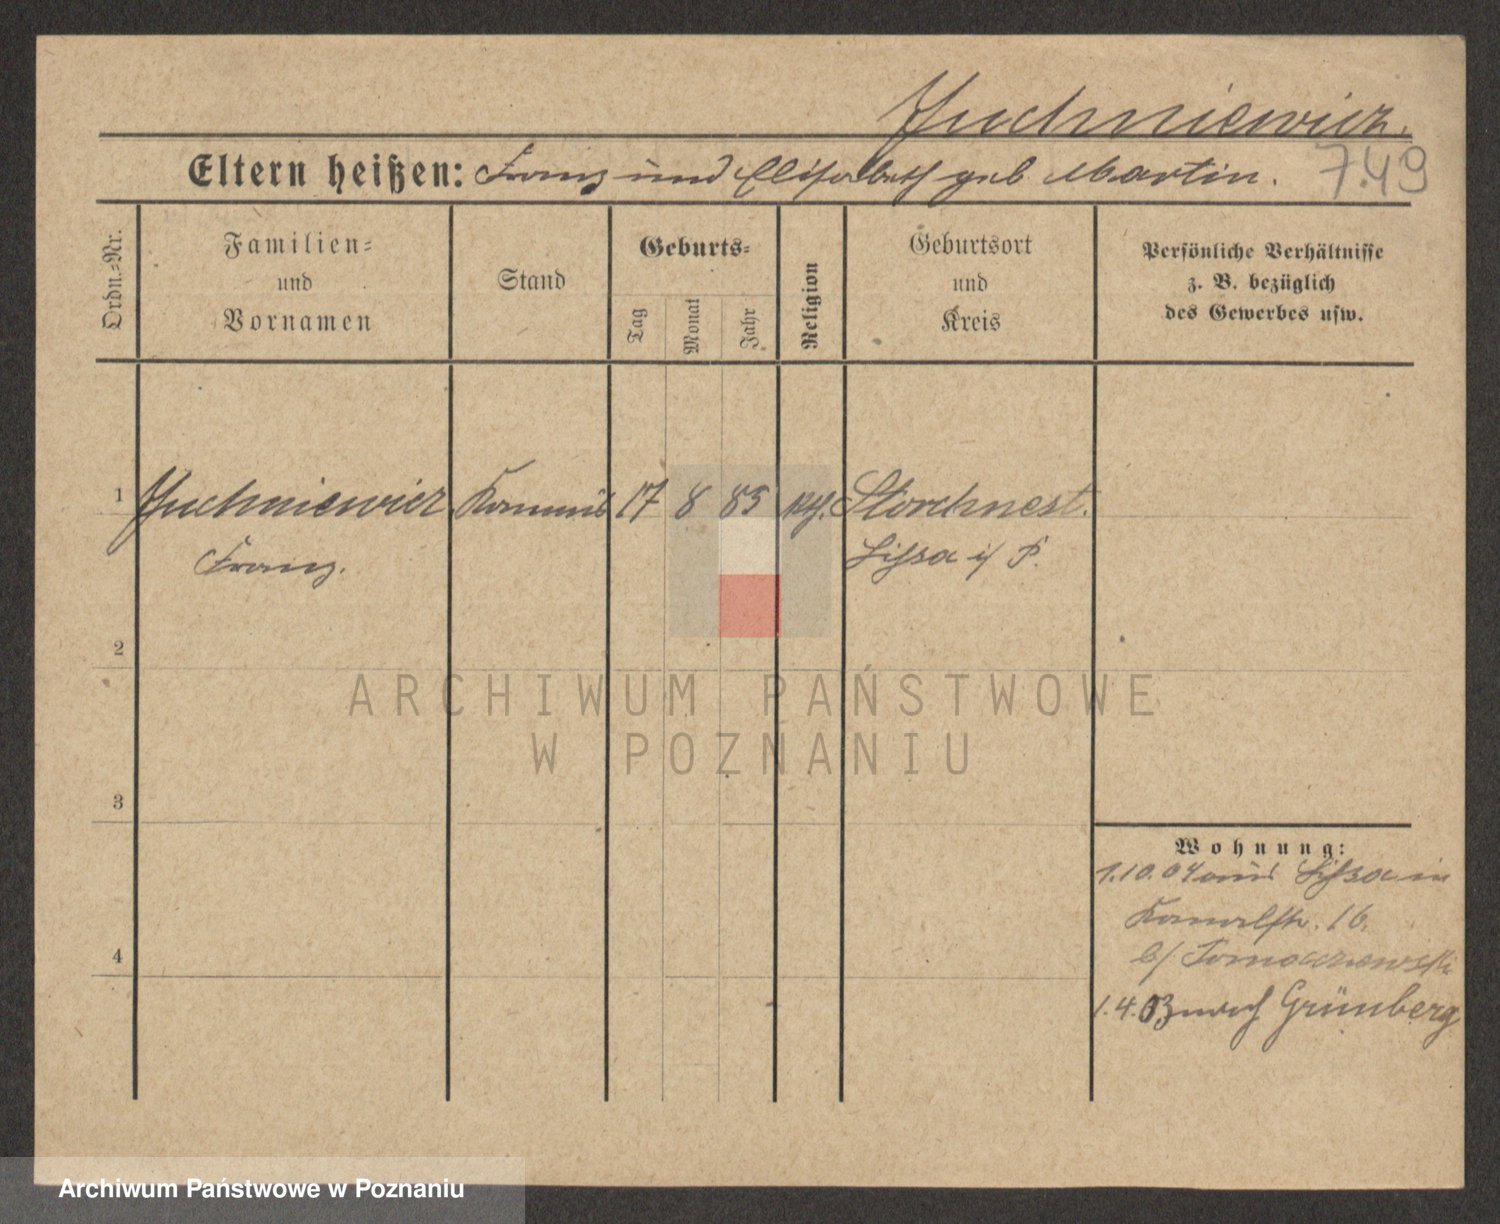 Juchniewicz.
Eltern heißen: Franz und Elisabeth geb Martin.
7.49
Ordn.=Nr.
Familien=
und
Vornamen
Stand
Geburts=
Tag
Monat
Jahr
Religion
Geburtsort
und
Kreis
Persönliche Verhältnisse
z. B. bezüglich
des Gewerbes usw.
1 Juchniewicz Kommis 17 8 85 Storchnest.
Franz.
Lissa i/ P.
2
ARCHIWUM PAŃSTWOWE
W POZNANIU
3
4
Wohnung:
1.10.04 aus Lissa in
Kanalstr. 16.
b/ Tomaczewski
1.4. nach Grünberg
Archiwum Państwowe w Poznaniu